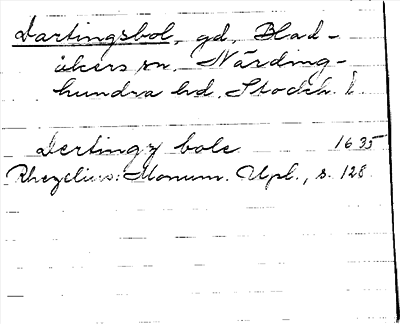 Dartingsbol, gd, Blad-
åkers sn. Närding-
hundra hd. Stockh. l.
Dertingz bole 1635
Rhezelius: Monum. Upl., s. 128